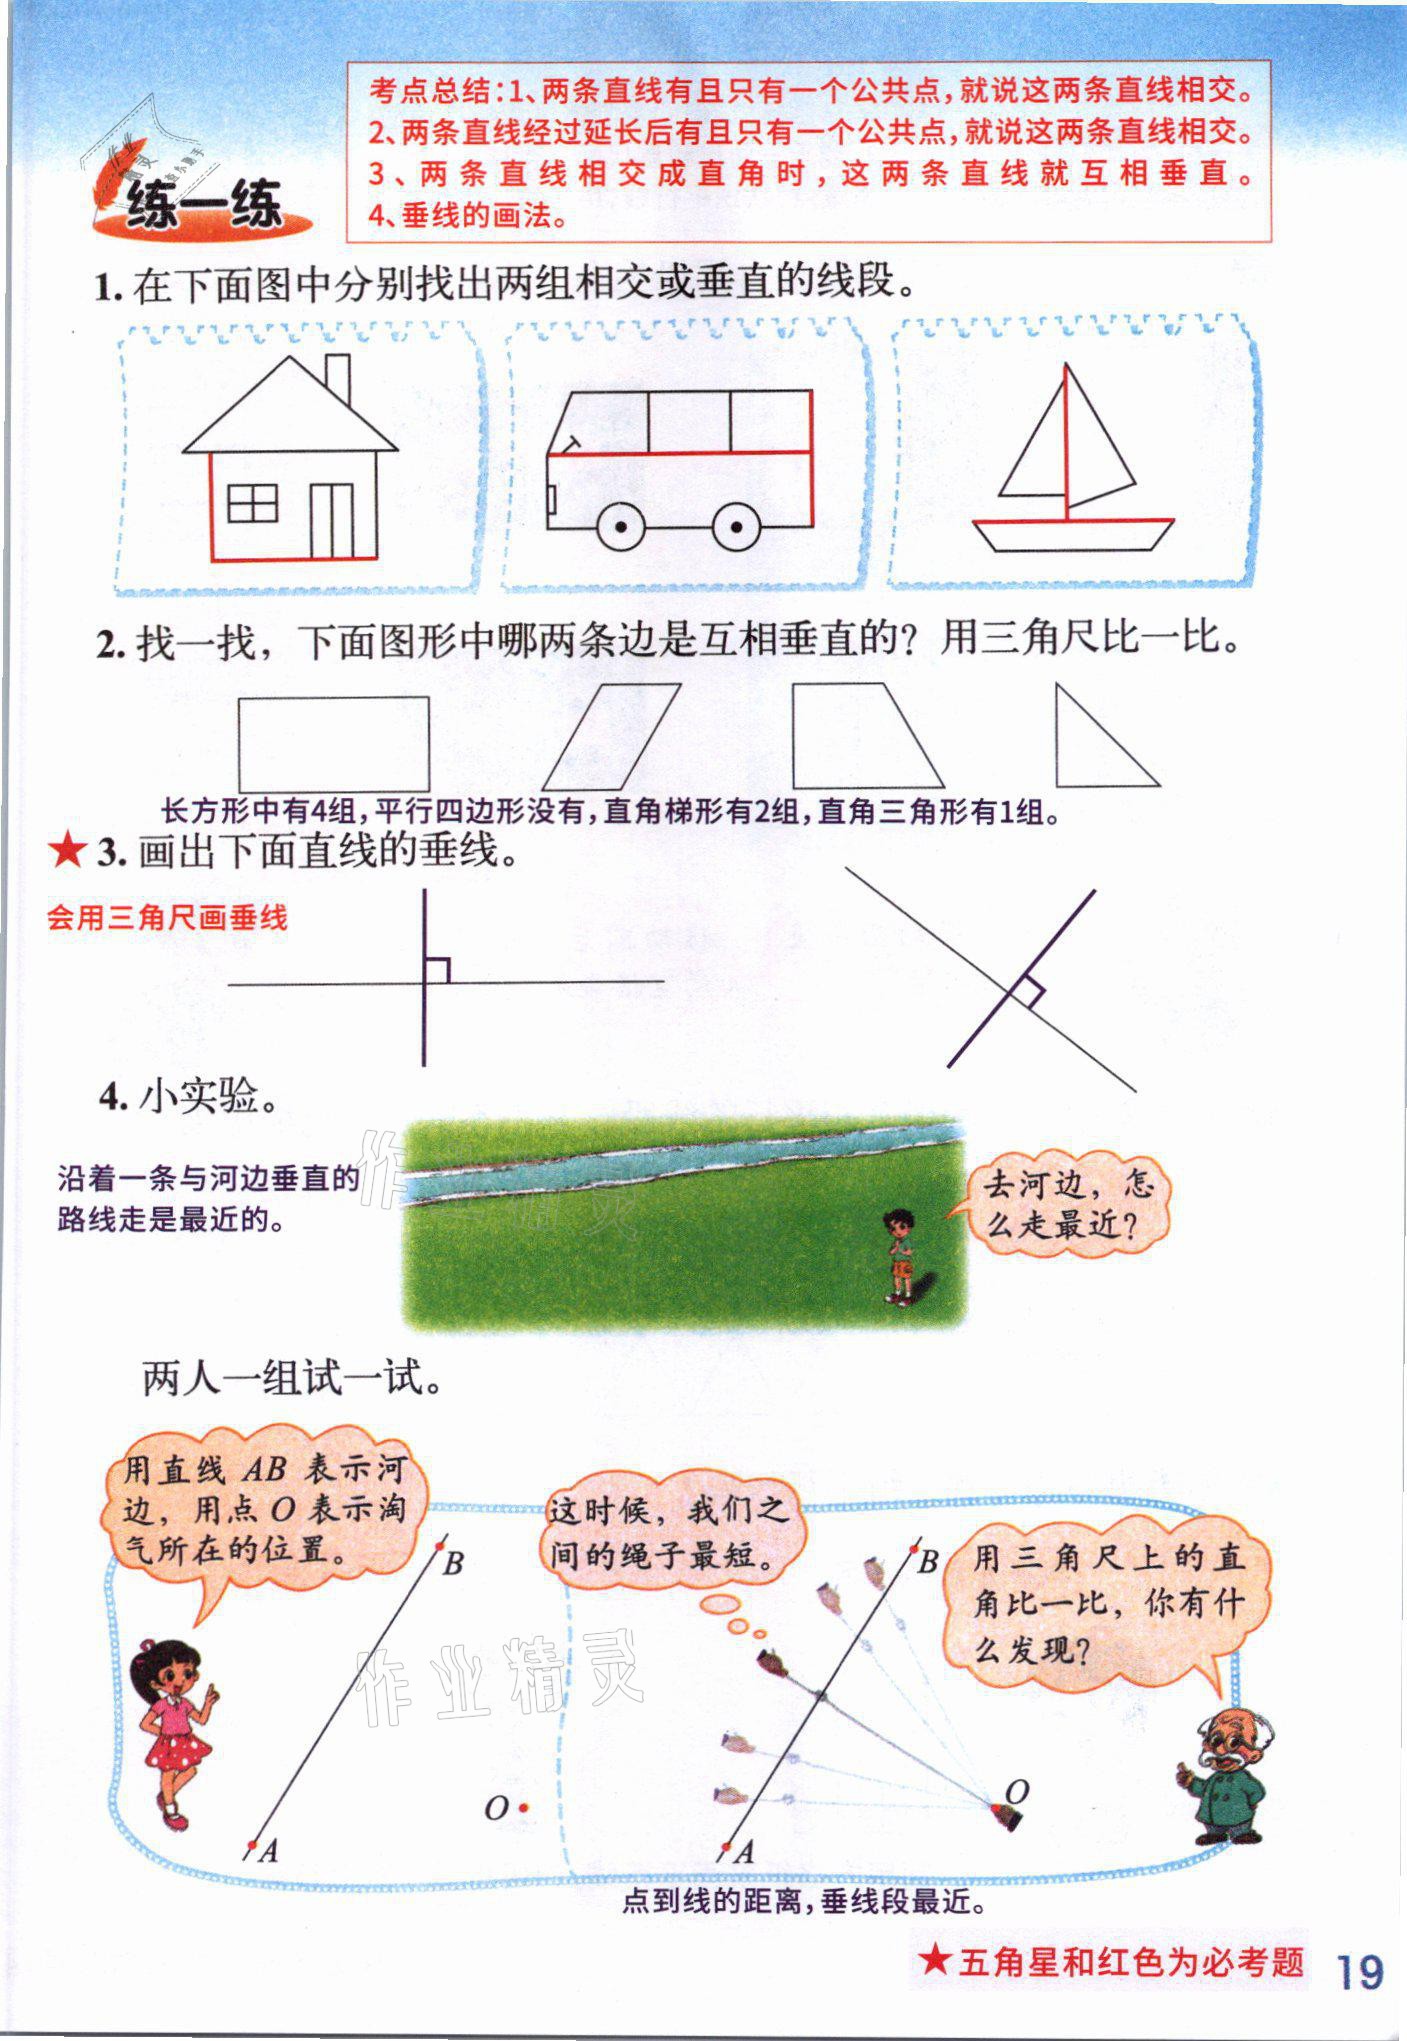 考点总结:1、两条直线有且只有一个公共点,就说这两条直线相交。
2、两条直线经过延长后有且只有一个公共点,就说这两条直线相交。
3、两条直线相交成直角时,这两条直线就互相垂直。
4、垂线的画法。
练一练
1. 在下面图中分别找出两组相交或垂直的线段。
2. 找一找，下面图形中哪两条边是互相垂直的？用三角尺比一比。
长方形中有4组,平行四边形没有,直角梯形有2组,直角三角形有1组。
★ 3. 画出下面直线的垂线。
会用三角尺画垂线
4. 小实验。
沿着一条与河边垂直的
路线走是最近的。
去河边，怎
么走最近？
两人一组试一试。
用直线 AB 表示河
边，用点 O 表示淘
气所在的位置。
这时候，我们之
间的绳子最短。
用三角尺上的直
角比一比，你有什
么发现？
B
A
O
B
A
O
作业精灵
点到线的距离,垂线段最近。
★五角星和红色为必考题
19